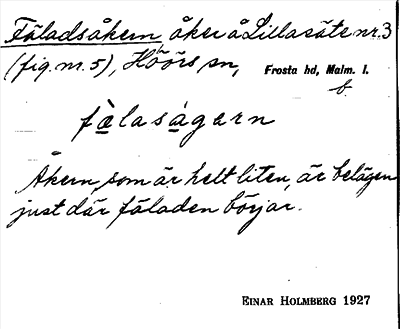 Fäladsåkern åker å Lillasäte nr. 3
(fig. nr. 5), Höörs sn, Frosta hd, Malm. l.
b.
fälaságern
Åkern, som är helt liten, är belägen
just där fäladen börjar.
EINAR HOLMBERG 1927